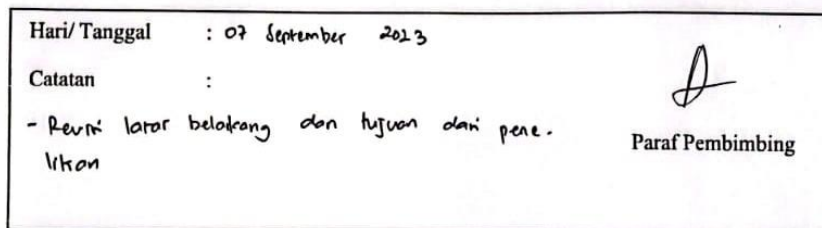 Hari/ Tanggal : 07 September 2023
Catatan :
- Revisi latar belakang dan tujuan dari pene-
litian
Paraf Pembimbing